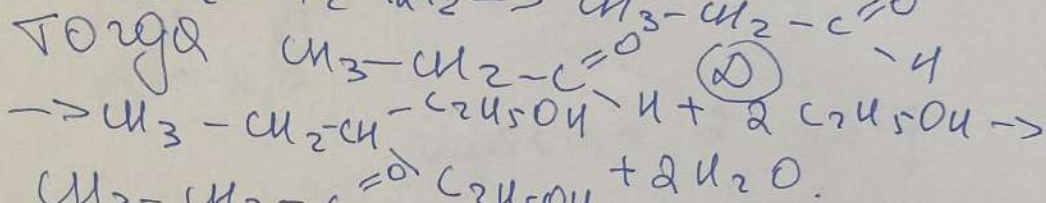 CH3-CH2-C=O
-H
Тогда CH3-CH2-C=O
-H + 2 C2H5OH ->
(D)
-> CH3-CH2-CH-C2H5OH
=O C2H5OH + 2H2O.